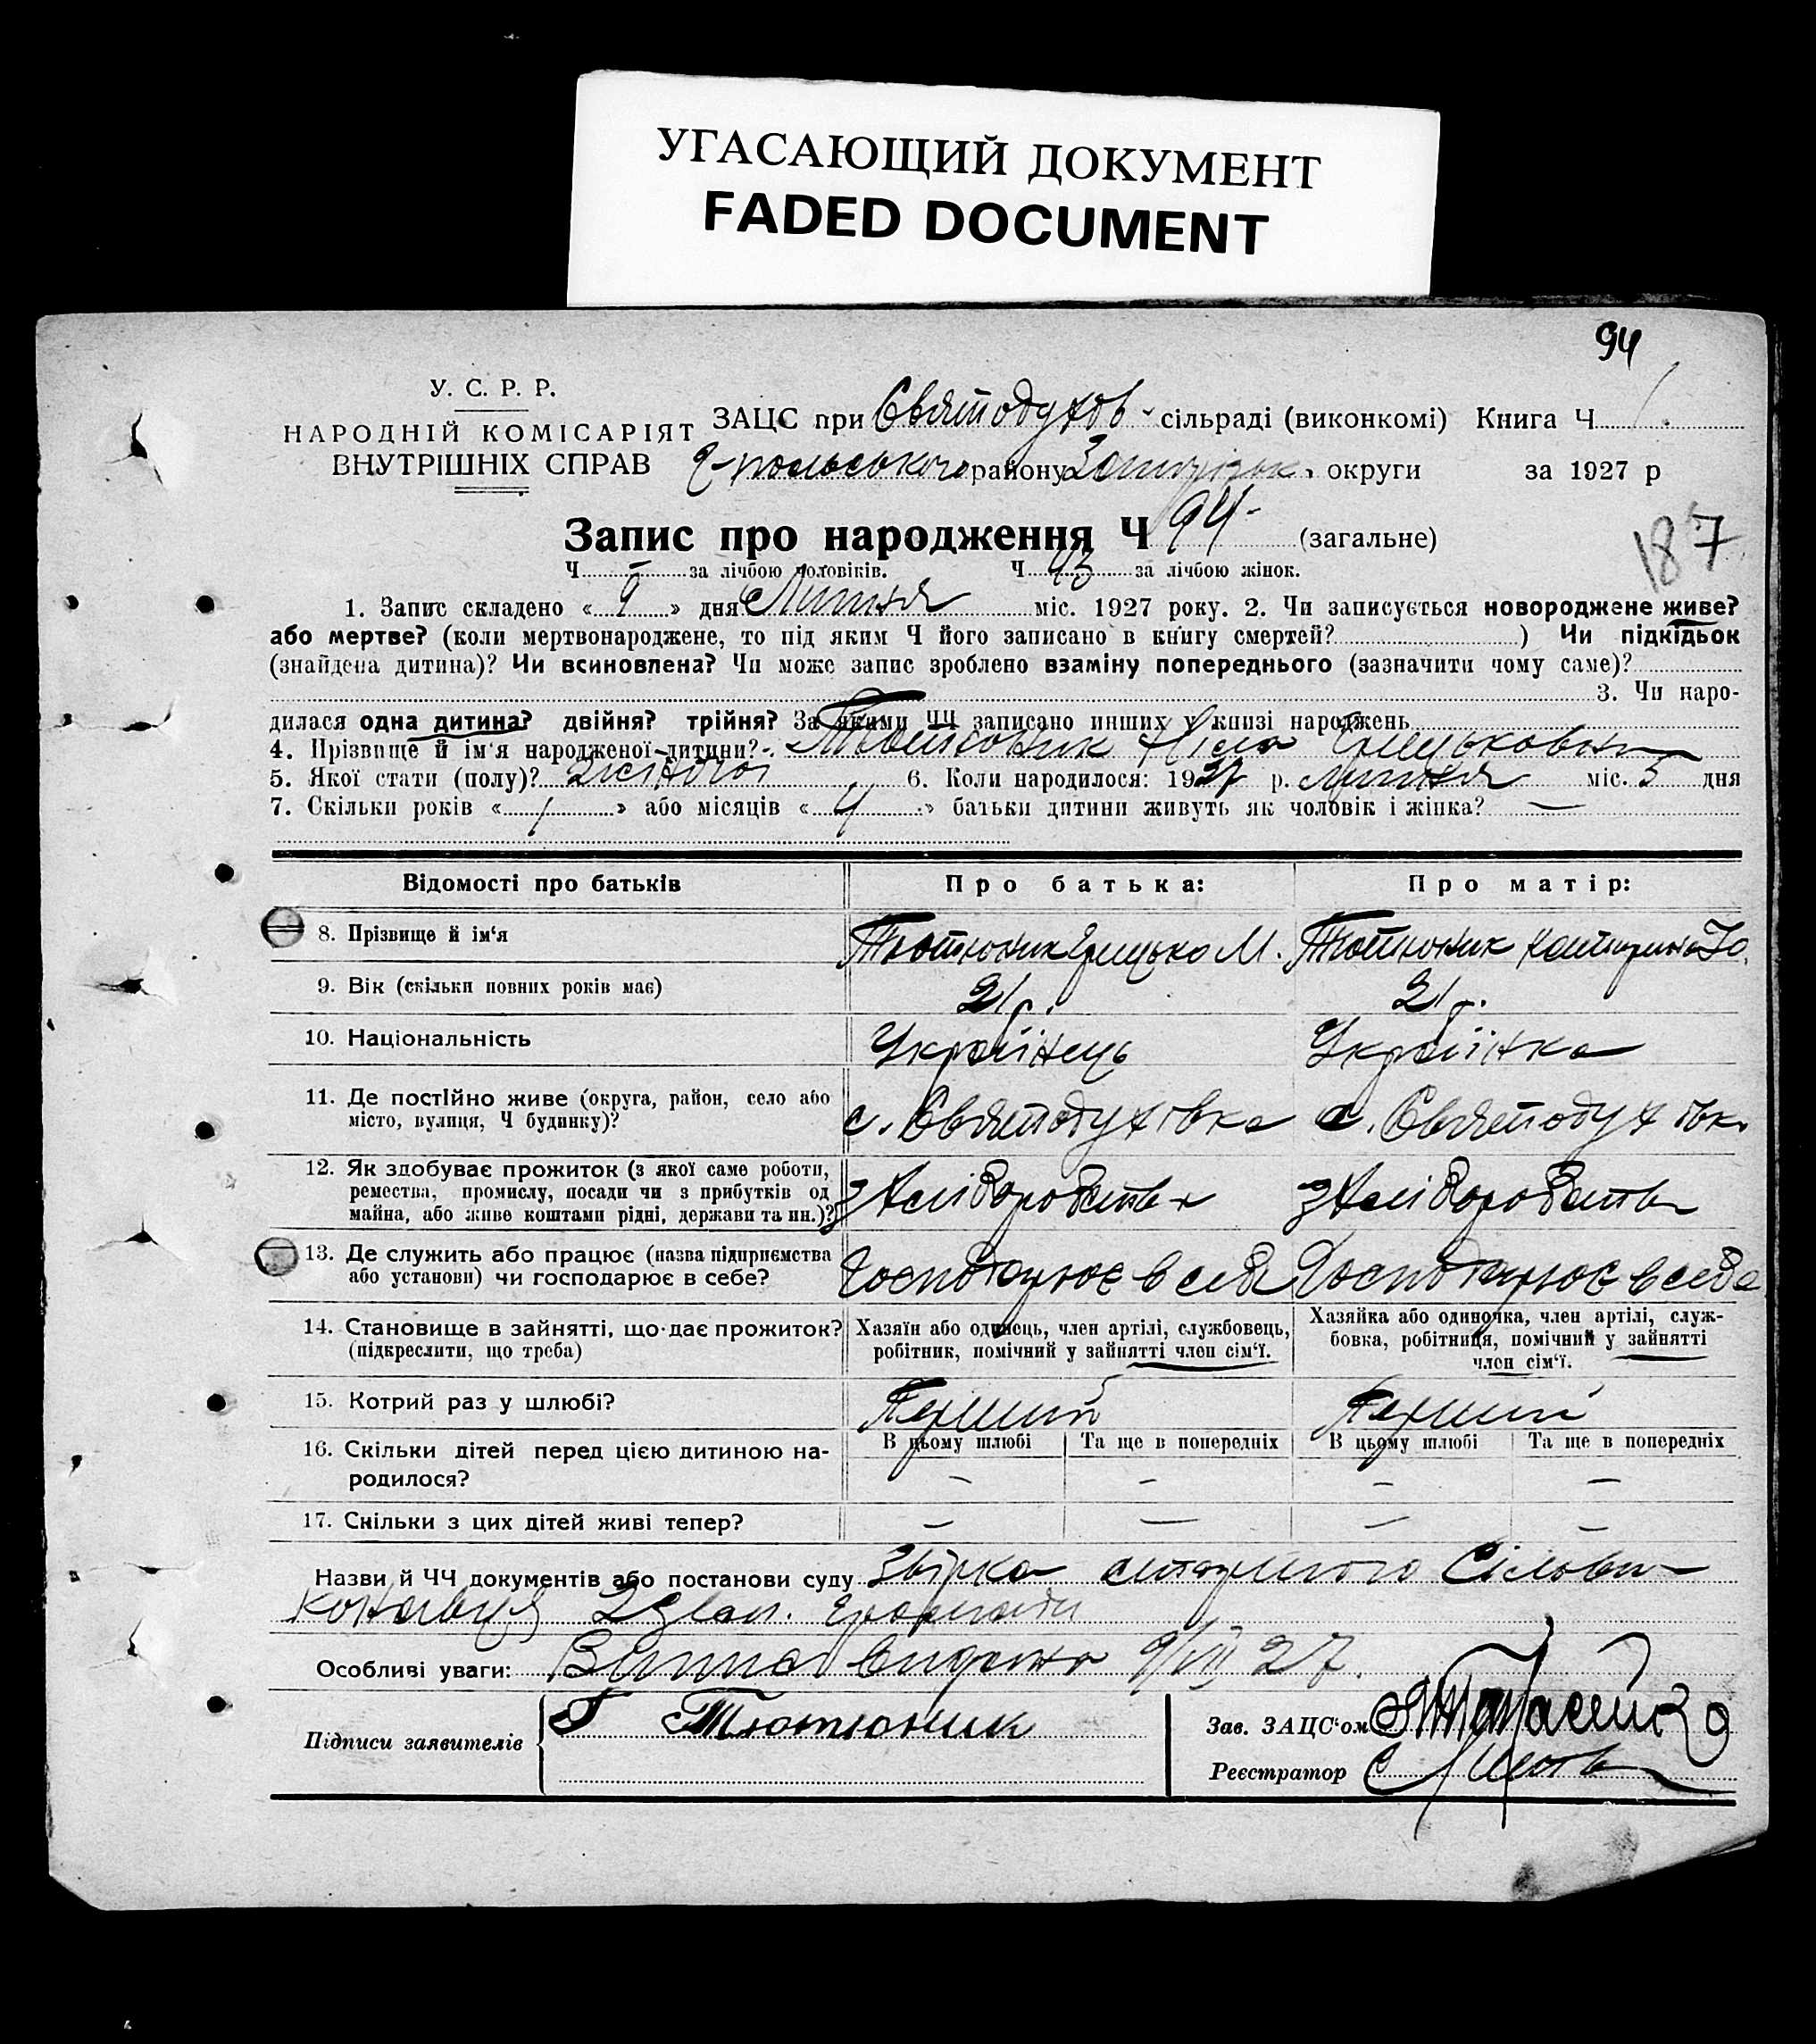 УГАСАЮЩИЙ ДОКУМЕНТ
FADED DOCUMENT
94
У. С. Р. Р.
НАРОДНІЙ КОМІСАРІЯТ
ВНУТРІШНІХ СПРАВ
ЗАЦС при Святодухов- сільраді (виконкомі) Книга Ч 1.
польського району Запоріжськ. округи за 1927 р
Запис про народження Ч 94- (загальне)
187
Ч — за лічбою чоловіків. Ч 43 за лічбою жінок.
1. Запис складено « 9 » дня Липня міс. 1927 року. 2. Чи записується новороджене живе?
або мертве? (коли мертвонароджене, то під яким Ч його записано в книгу смертей? ) Чи підкідьок
(знайдена дитина)? Чи всиновлена? Чи може запис зроблено взаміну попереднього (зазначити чому саме)?
3. Чи наро-
дилася одна дитина? двійня? трійня? За якими ЧЧ записано инших у книзі народжень
4. Прізвище й ім‘я народженої дитини? Тютюник Грицьковна
5. Якої стати (полу)? жіночої 6. Коли народилося: 1927 р. липня міс. 5 дня
7. Скільки років « 1 » або місяців « 4 » батьки дитини живуть як чоловік і жінка? —
Відомості про батьків Про батька: Про матір:
8. Прізвище й ім‘я Тютюник Грицько М. Тютюник Катерина Ю.
9. Вік (скільки повних років має) 21 р. 21 р.
10. Національність Українець Українка
11. Де постійно живе (округа, район, село або
місто, вулиця, Ч будинку)? с. Святодухівка с. Святодухівк.
12. Як здобуває прожиток (з якої саме роботи,
ремества, промислу, посади чи з прибутків од
майна, або живе коштами рідні, держави та ин.)? з хліборобства з хліборобства
13. Де служить або працює (назва підприємства
або установи) чи господарює в себе? Господарює в себе Господарює в себе
14. Становище в зайнятті, що дає прожиток?
(підкреслити, що треба)
Хазяїн або одинець, член артілі, службовець,
робітник, помічний у зайнятті член сім‘ї.
Хазяйка або одиночка, член артілі, служ-
бовка, робітниця, помічний у зайнятті
член сім‘ї.
15. Котрий раз у шлюбі? Перший Перший
В цьому шлюбі Та ще в попередніх В цьому шлюбі Та ще в попередніх
16. Скільки дітей перед цією дитиною на-
родилося? — — — —
17. Скільки з цих дітей живі тепер? — — — —
Назви й ЧЧ документів або постанови суду Звірка
Особливі уваги: Випис видано 9/VII 27.
Підписи заявителів Г Тютюник
Зав. ЗАЦС‘ом
Реєстратор